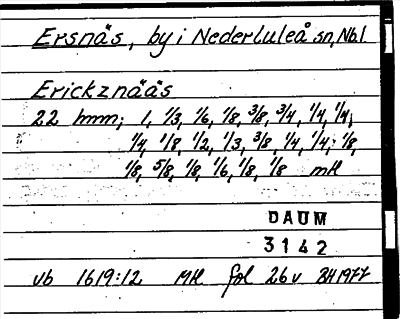 Ersnäs, by i Nederluleå sn, Nb. l
Erickznääs
22 hmm; 1, 1/3, 1/6, 1/8, 3/8, 3/4, 1/4, 1/4,
1/4, 1/8, 1/2, 1/3, 3/8, 1/4, 1/4, 1/8,
1/8, 5/8, 1/8, 1/6, 1/8, 1/8 mtl
DAUM
3142
vb 1619:12 Mtl fol 26 v BH 1977